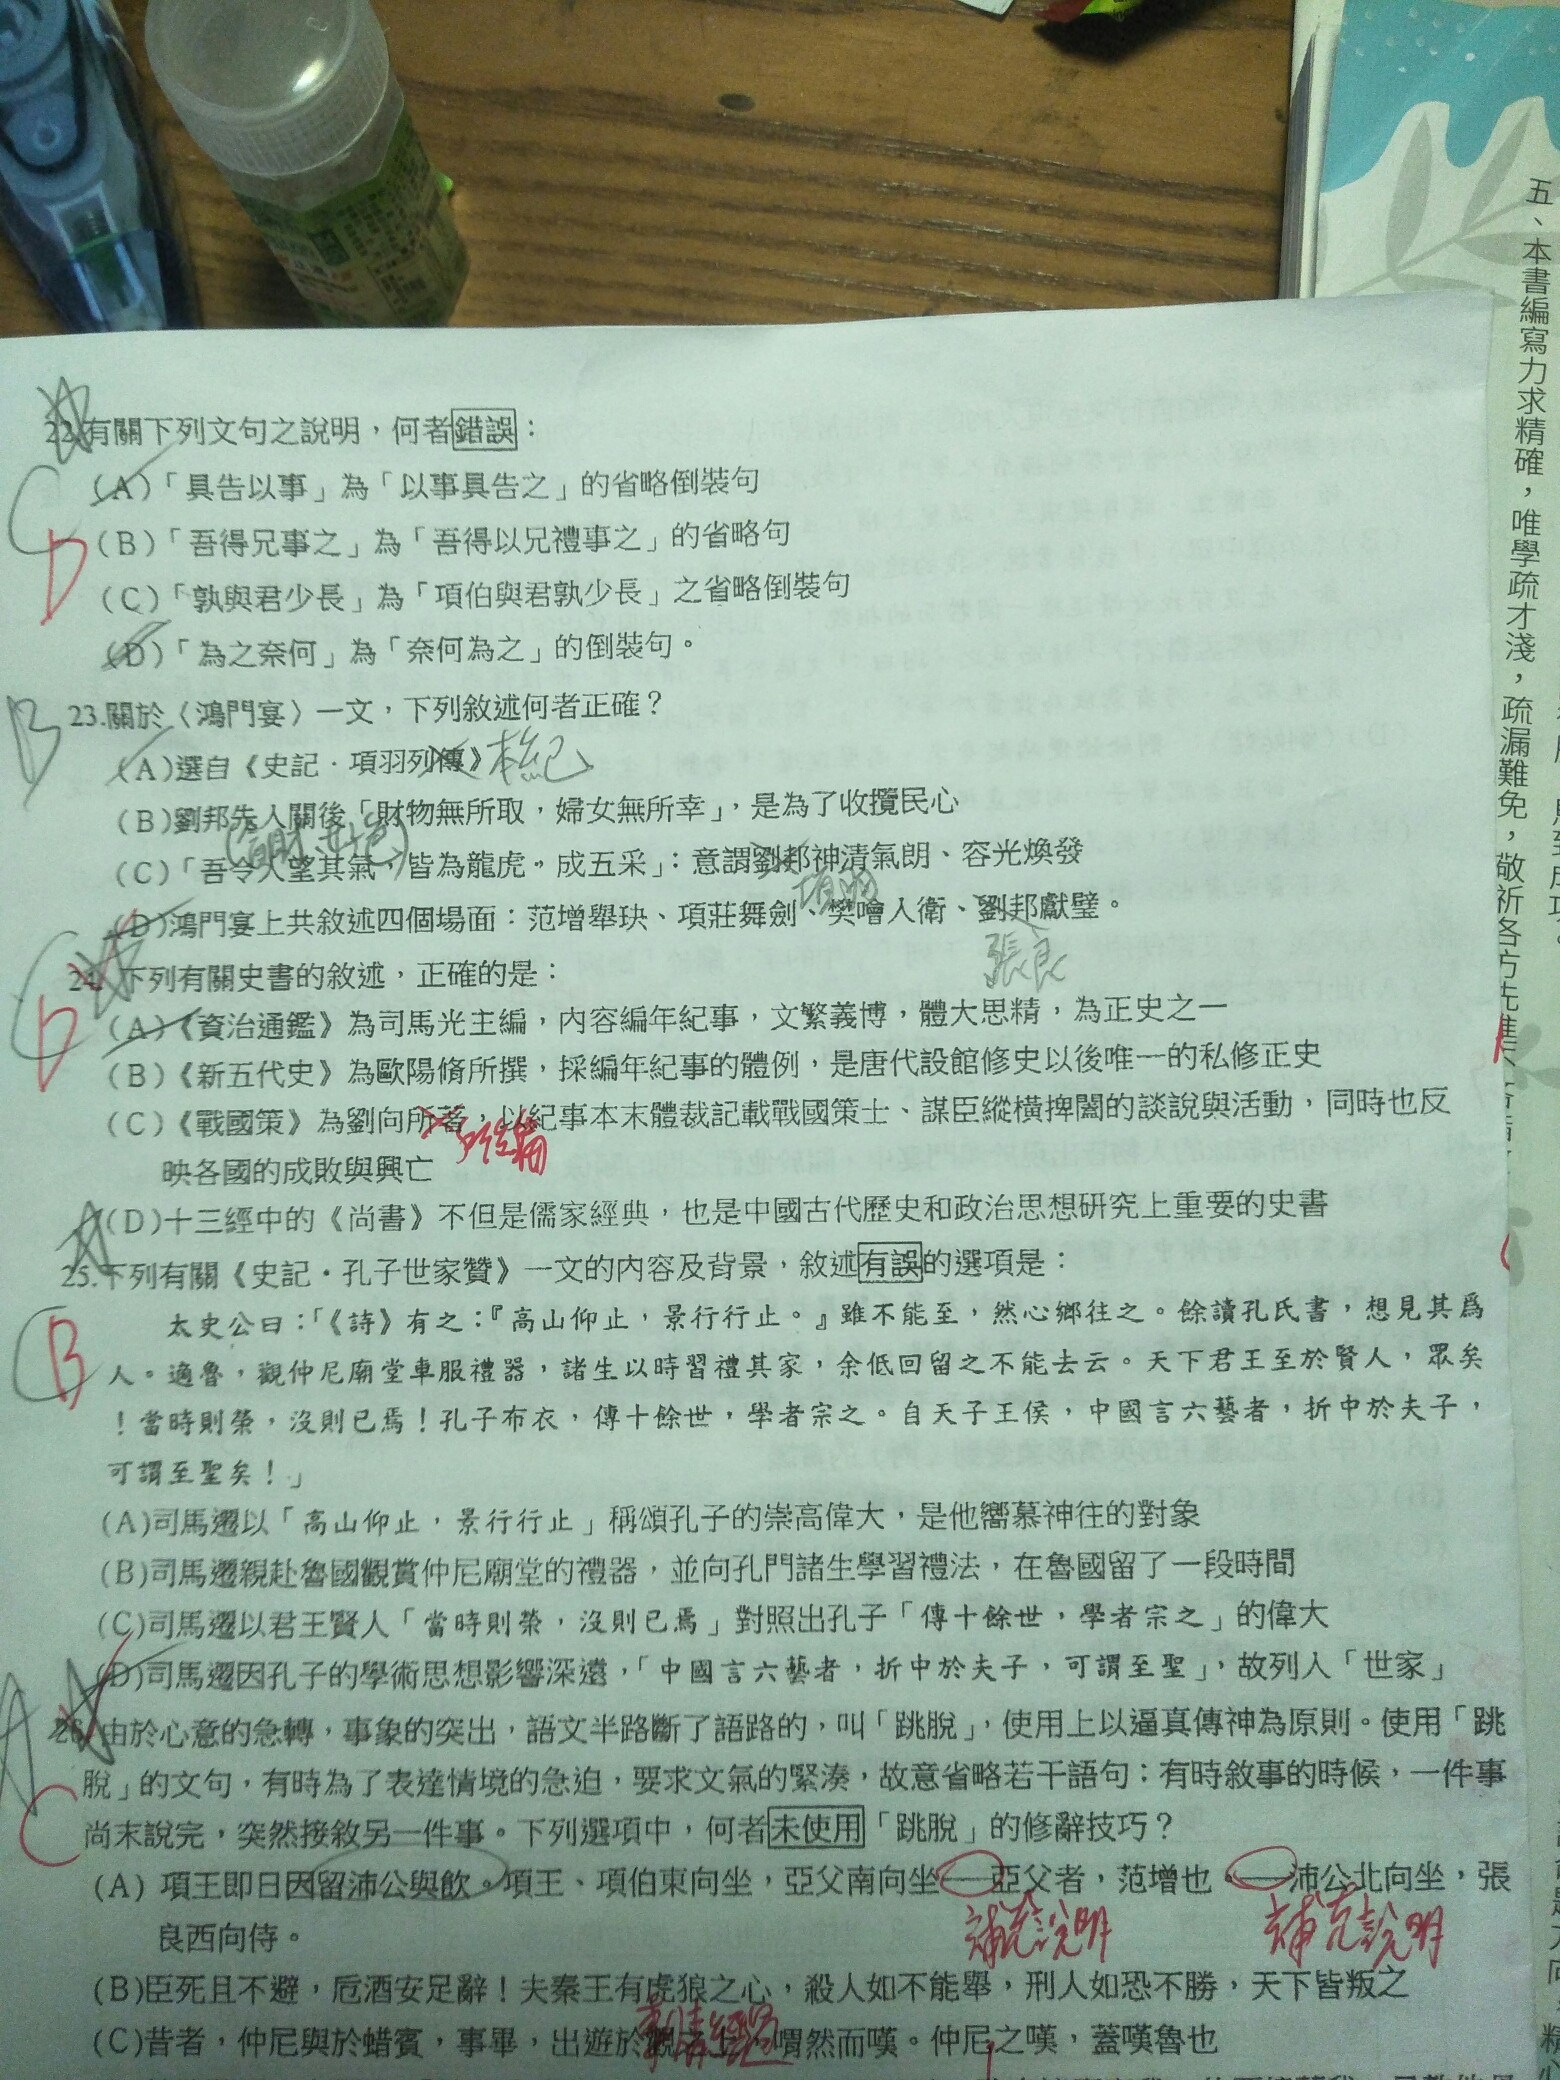 五、本書編寫力求精確，唯學疏才淺，疏漏難免，敬祈各方先進
22.有關下列文句之說明，何者錯誤：
C
D
(A)「具告以事」為「以事具告之」的省略倒裝句
(B)「吾得兄事之」為「吾得以兄禮事之」的省略句
(C)「孰與君少長」為「項伯與君孰少長」之省略倒裝句
(D)「為之奈何」為「奈何為之」的倒裝句。
B
23.關於〈鴻門宴〉一文，下列敘述何者正確？
(A)選自《史記．項羽列傳》本紀
(B)劉邦先入關後「財物無所取，婦女無所幸」，是為了收攬民心
(C)「吾令人望其氣，皆為龍虎，成五采」：意謂劉邦神清氣朗、容光煥發
項羽
(D)鴻門宴上共敘述四個場面：范增舉玦、項莊舞劍、樊噲入衛、劉邦獻璧。
張良
C
D
24.下列有關史書的敘述，正確的是：
(A)《資治通鑑》為司馬光主編，內容編年紀事，文繁義博，體大思精，為正史之一
(B)《新五代史》為歐陽脩所撰，採編年紀事的體例，是唐代設館修史以後唯一的私修正史
(C)《戰國策》為劉向所著，以紀事本末體裁記載戰國策士、謀臣縱橫捭闔的談說與活動，同時也反
映各國的成敗與興亡
(D)十三經中的《尚書》不但是儒家經典，也是中國古代歷史和政治思想研究上重要的史書
25.下列有關《史記．孔子世家贊》一文的內容及背景，敘述有誤的選項是：
B
太史公曰：「《詩》有之：『高山仰止，景行行止。』雖不能至，然心鄉往之。餘讀孔氏書，想見其為
人。適魯，觀仲尼廟堂車服禮器，諸生以時習禮其家，余低回留之不能去云。天下君王至於賢人，眾矣
！當時則榮，沒則已焉！孔子布衣，傳十餘世，學者宗之。自天子王侯，中國言六藝者，折中於夫子，
可謂至聖矣！」
(A)司馬遷以「高山仰止，景行行止」稱頌孔子的崇高偉大，是他嚮慕神往的對象
(B)司馬遷親赴魯國觀賞仲尼廟堂的禮器，並向孔門諸生學習禮法，在魯國留了一段時間
(C)司馬遷以君王賢人「當時則榮，沒則已焉」對照出孔子「傳十餘世，學者宗之」的偉大
(D)司馬遷因孔子的學術思想影響深遠，「中國言六藝者，折中於夫子，可謂至聖」，故列入「世家」
A
C
26.由於心意的急轉，事象的突出，語文半路斷了語路的，叫「跳脫」，使用上以逼真傳神為原則。使用「跳
脫」的文句，有時為了表達情境的急迫，要求文氣的緊湊，故意省略若干語句；有時敘事的時候，一件事
尚未說完，突然接敘另一件事。下列選項中，何者未使用「跳脫」的修辭技巧？
(A) 項王即日因留沛公與飲。項王、項伯東向坐，亞父南向坐──亞父者，范增也。──沛公北向坐，張
良西向侍。
補充說明
補充說明
(B)臣死且不避，卮酒安足辭！夫秦王有虎狼之心，殺人如不能舉，刑人如恐不勝，天下皆叛之
事情經過
(C)昔者，仲尼與於蜡賓，事畢，出遊於觀之上，喟然而嘆。仲尼之嘆，蓋嘆魯也